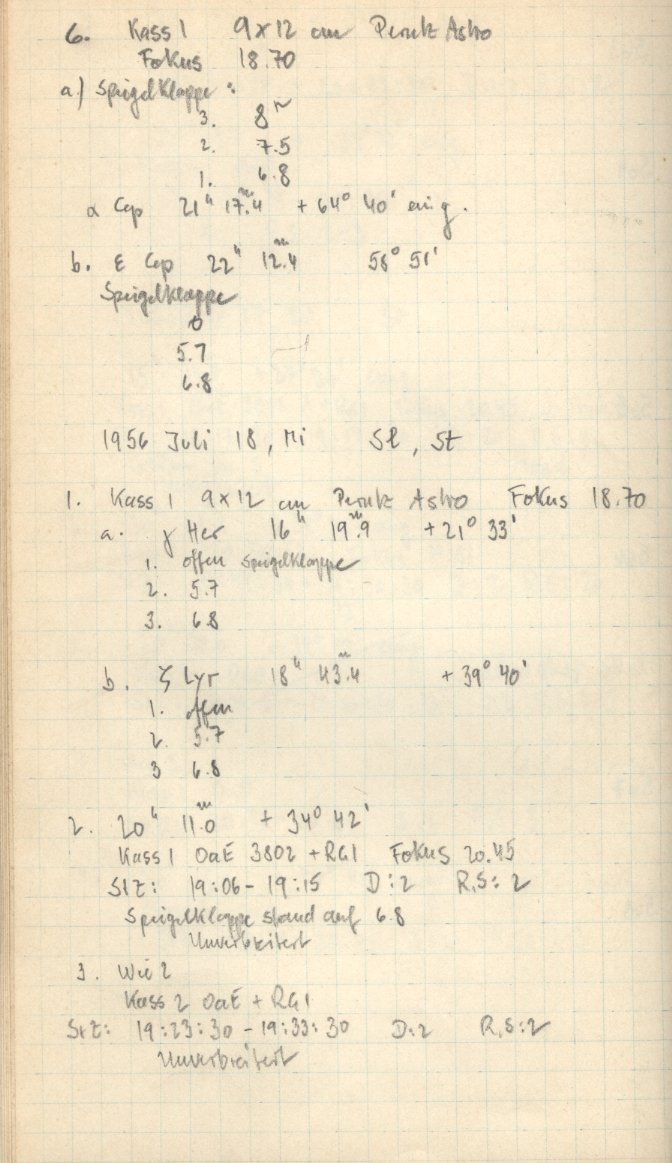 6. Kass 1 9x12 cm Perutz Astro
Fokus 18.70
a) Spiegelklappe:
3. 8m
2. 7.5
1. 6.8
α Cep 21h 17.4m +64° 40' eing.
b. ε Cep 22h 12.4m 58° 51'
Spiegelklappe
0
5.7
6.8
1956 Juli 18, Mi Sl, St
1. Kass 1 9x12 cm Perutz Astro Fokus 18.70
a. γ Her 16h 19.9m +21° 33'
1. offen Spiegelklappe
2. 5.7
3. 6.8
b. ζ Lyr 18h 43.4m +39° 40'
1. offen
2. 5.7
3 6.8
2. 20h 11.0m +34° 42'
Kass 1 OaE 3802 + RG1 Fokus 20.45
StZ: 19:06 - 19:15 D:2 R,S: 2
Spiegelklappe stand auf 6.8
Unverbreitert
3. Wie 2
Kass 2 OaE + RG1
StZ: 19:23:30 - 19:33:30 D:2 R,S:2
Unverbreitert